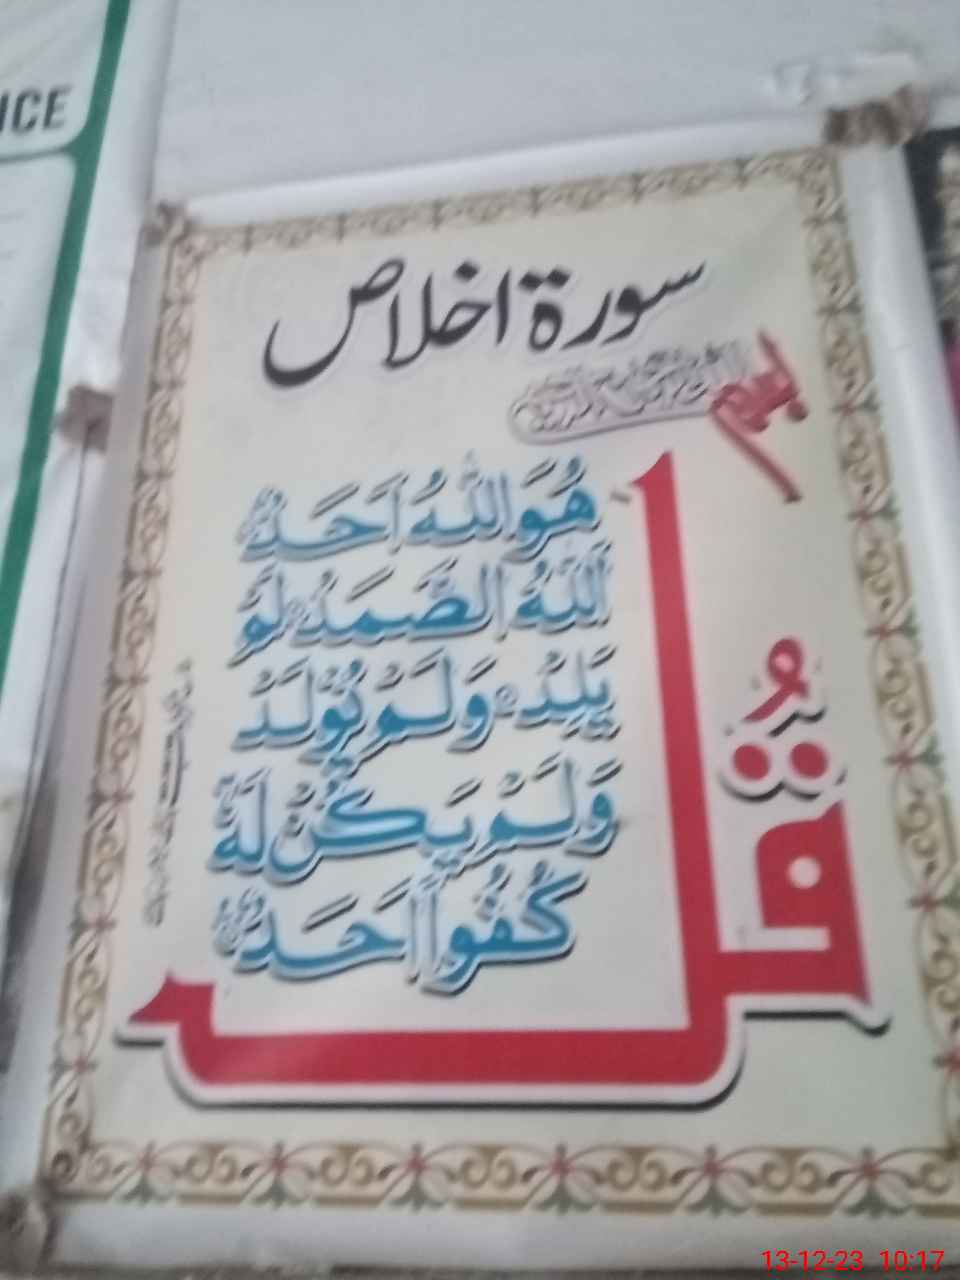 ICE
سورۃ اخلاص
بسم اللہ الرحمن الرحیم
قُلْ
هُوَ اللّٰهُ اَحَدٌ
اَللّٰهُ الصَّمَدُ لَمْ
يَلِدْ وَلَمْ يُوْلَدْ
وَلَمْ يَكُنْ لَهٗ
كُفُوًا اَحَدٌ
13-12-23 10:17